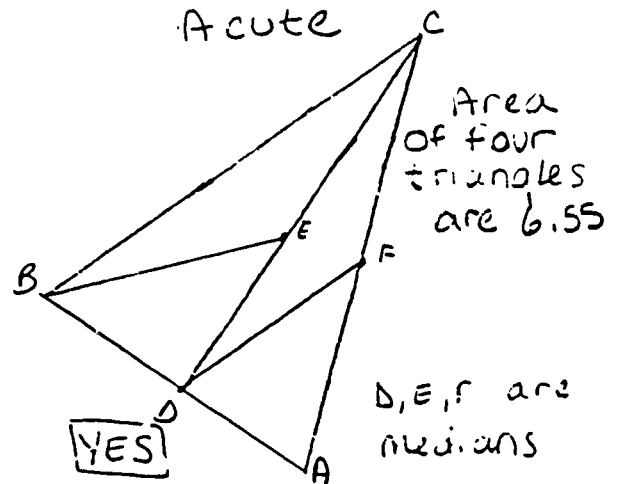 Acute
C
Area
of four
triangles
are 6.55
E
F
B
D
D, E, F are
medians
YES
A